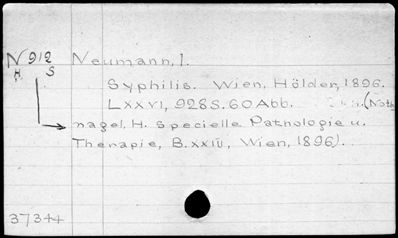 N 912 Neumann, I.
H S
Syphilis. Wien, Hölder, 1896.
LXXVI, 928 S. 60 Abb. (Noth
nagel, H. Specielle Pathologie u.
Therapie, B. XXIII, Wien, 1896).
37344